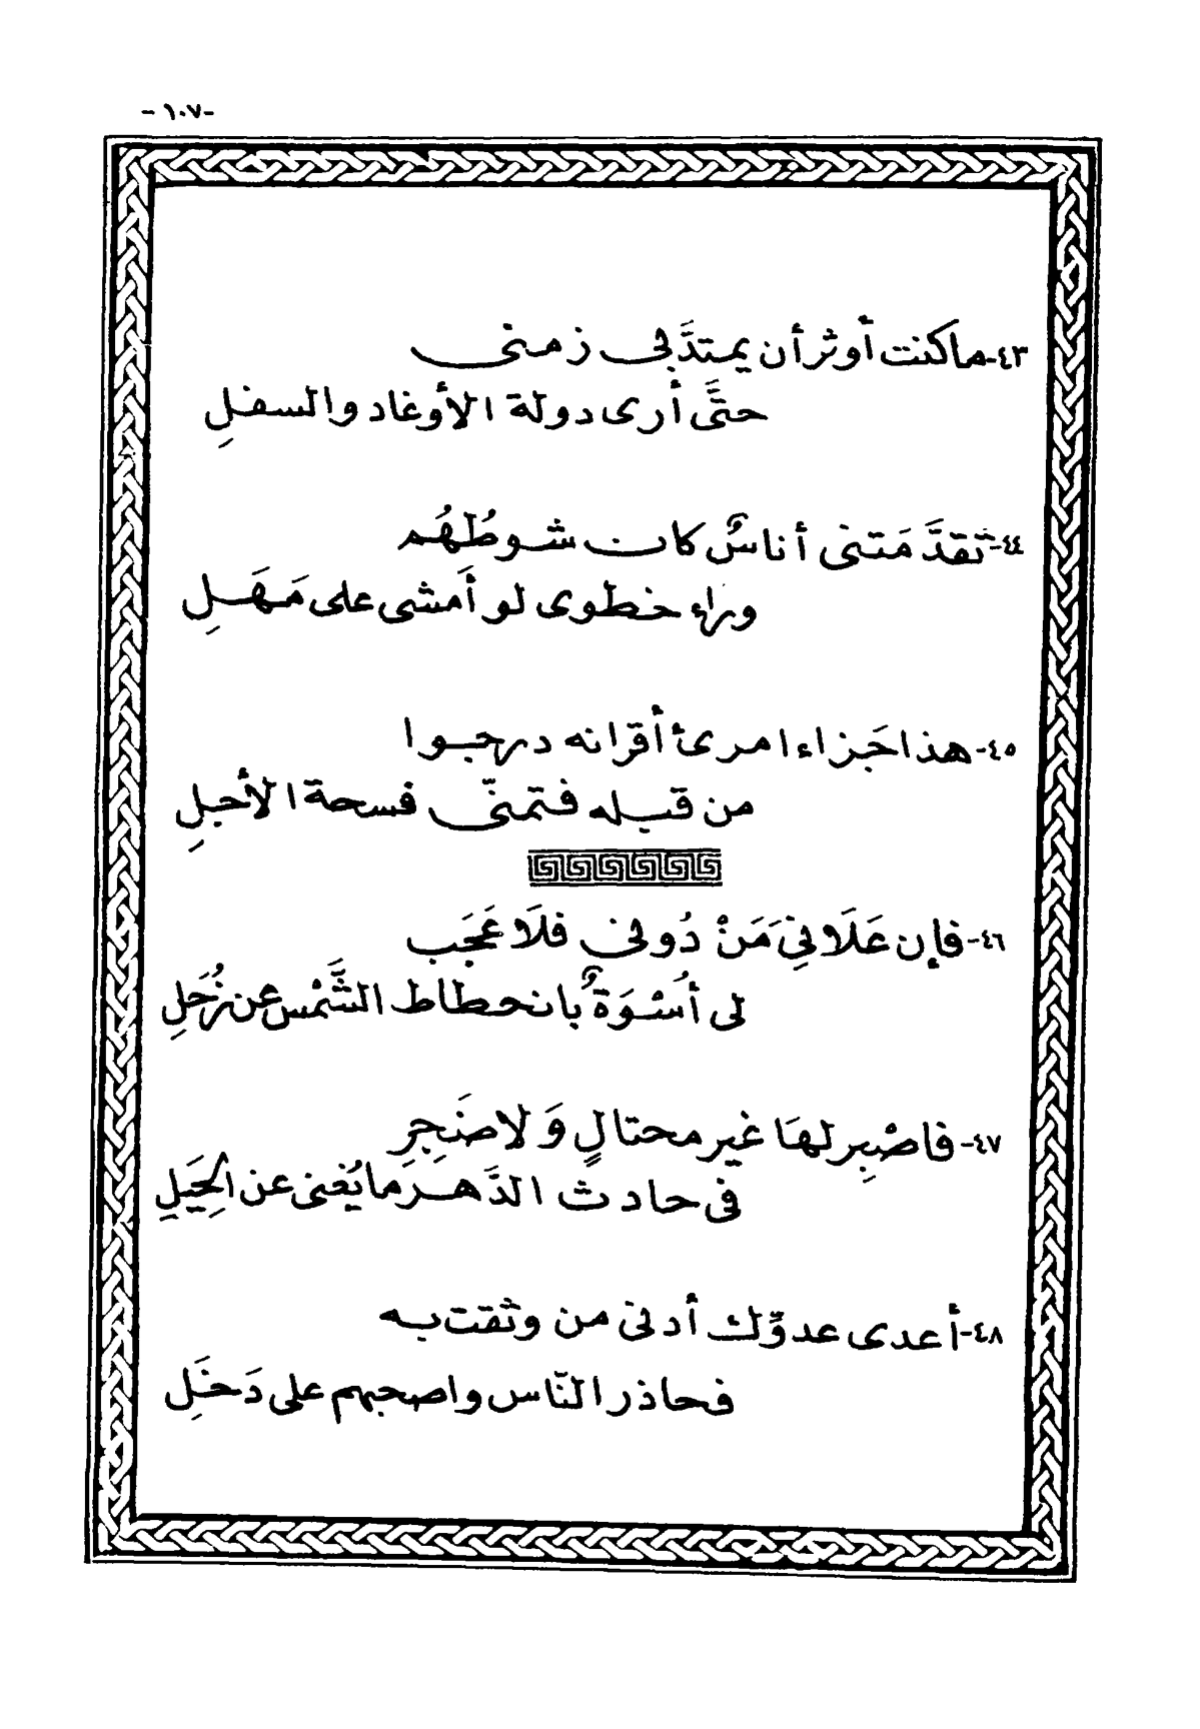 -١٠٧-
٤٣-ما كنت أوثر أن يمتدَّ بى زمنى
حتَّى أرى دولة الأوغاد والسفلِ
٤٤-تقدَّمَتنى أناسٌ كان شوطُهُم
وراء خطوى لو أمشى على مَهَلِ
٤٥-هذا جَزاء امرئ أقرانه درجوا
من قبله فتمنّى فسحة الأجلِ
٤٦-فإن عَلَانِى مَنْ دُونى فلَا عَجَب
لى أُسْوَةٌ بانحطاط الشَّمْس عن زُحَلِ
٤٧-فاصْبِر لهَا غير محتالٍ وَلا ضَجِرِ
فى حادث الدَّهر مَا يُغنى عن الحِيَلِ
٤٨-أعدى عدوِّك أدنى من وثقت به
فحاذر النّاس واصحبهم على دَخَلِ